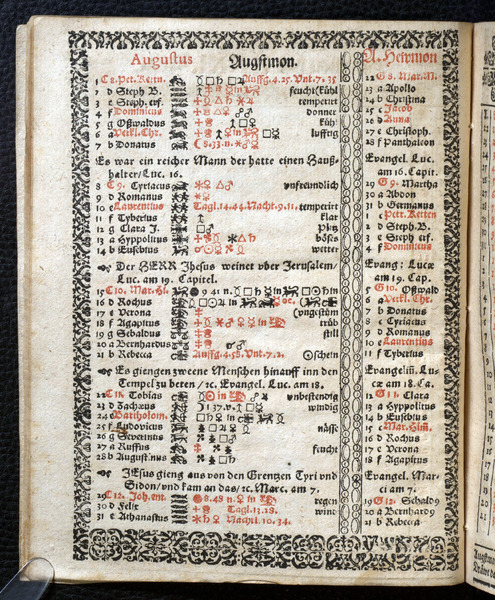 Augustus Augstmon. A. Hewmon
1 C 8. Pet. Kettn. Auffg. 4. 25. Vnt. 7. 35 22 G 8. Mar. M.
2 d Steph B. feucht/kühl 23 a Apollo
3 e Steph. erf. temperirt 24 b Christina
4 f Dominicus donner 25 c Jacob
5 g Oßwaldus 26 Anna
6 Verkl. Chr. lufftig 27 e Christoph.
7 b Donatus 8. 33. n. 28 f Panthaleon
Es war ein reicher Mann der hatte einen Hauß- Evangel. Luc.
halter/Luc. 16. am 16. Capit.
8 C 9. Cyriacus vnfreundlich 29 G 9. Martha
9 d Romanus 30 a Abdon
10 e Laurentius Tagl. 14. 44. Nacht. 9. 11. temperirt 31 b Germanus
11 f Tyberius klar 1 c Pett. Ketten
12 g Clara J. Platz 2 d Steph. B.
13 a Hyppolitus böses 3 e Steph erf.
14 b Eusebius wetter 4 f Dominicus
Der HERR Jhesus weinet vber Jerusalem/ Evang: Lucæ
Luc. am 19. Capitel. am 19. Cap.
15 C 10. Mar. Hi. 9 41 n. in 5 G 10. Oßwald
16 d Rochus in 6 Verkl. Chr.
17 e Verona (vngestüm 7 b Donatus
18 f Agapitus in trüb 8 c Cyriacus
19 g Sebaldus still 9 d Romanus
20 a Bernhardus 10 e Laurentius
21 b Rebecca Auffg. 4. 58. Vnt. 7. 2. schein 11 f Tyberius
Es giengen zweene Menschen hinauff inn den Evangeliū. Lu-
Tempel zu beten / ꝛc. Evangel. Luc. am 18. cæ am 18. Ca.
22 C 11. Tobias in vnbestendig 12 G 11. Clara
23 d Zachæus 1 37. v. windig 13 a Hyppolitus
24 Bartholom. in 14 b Eusebius
25 f Ludovicus nässe 15 Mar. Him.
26 g Severinus 16 d Rochus
27 a Ruffus feucht 17 e Verona
28 b Augustinus 18 f Agapitus
JEsus gieng aus von den Grentzen Tyri vnd Evangel. Mar-
Sidon/vnd kam an das/ꝛc. Marc. am 7. ci am 7.
29 C 12. Joh. ent. 8. 48 n. in regen 19 G 12. Sebald9
30 d Felix Tagl. 13. 18. wind 20 a Bernhard9
31 e Athanasius Nachtl. 10. 34. 21 b Rebecca